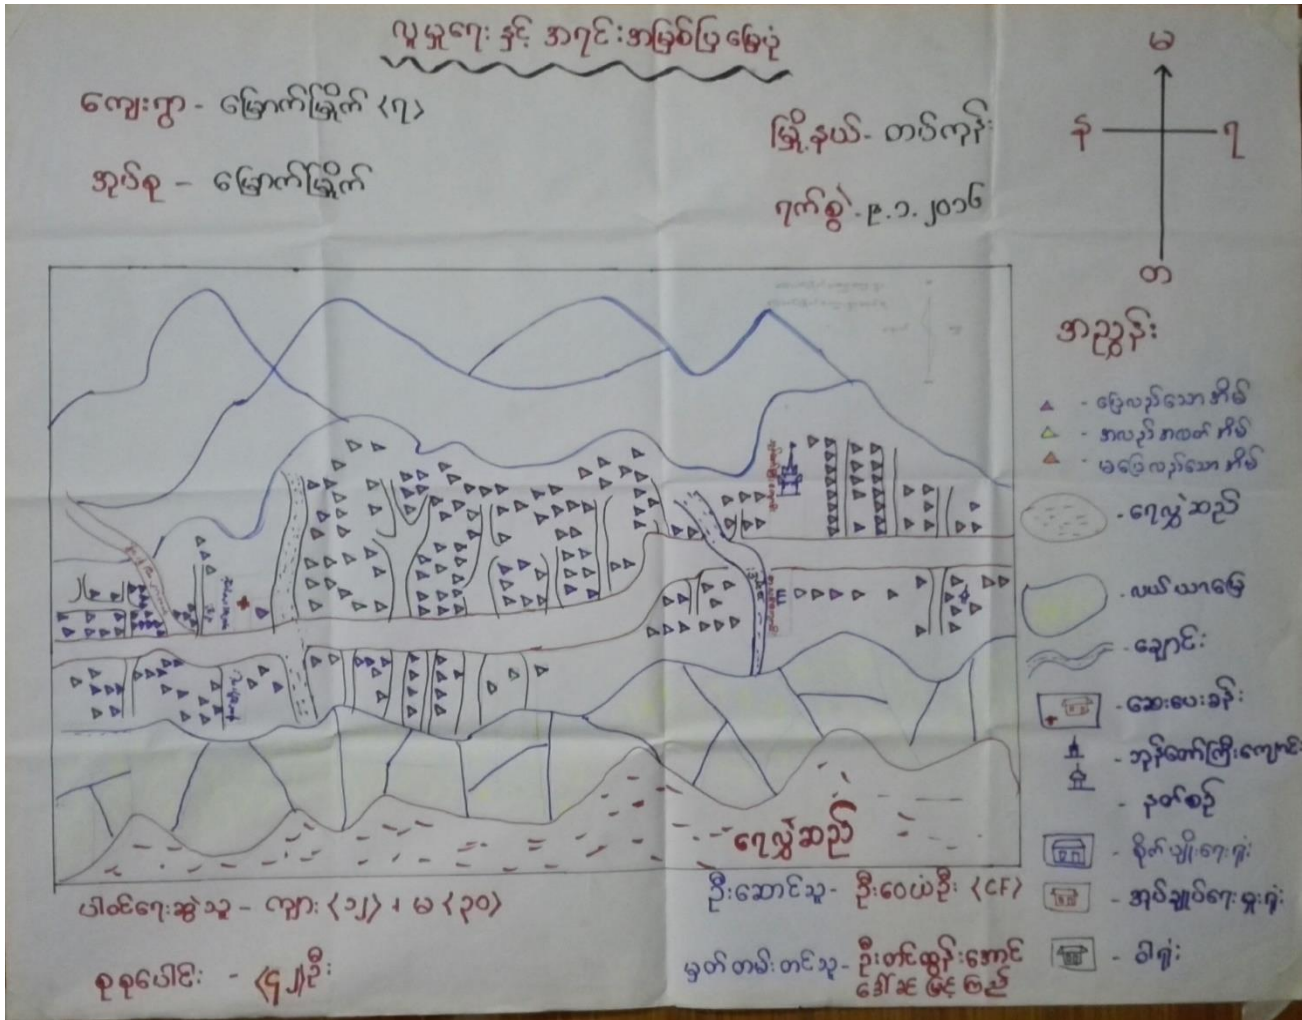 လူမှုရေး နှင့် အရင်းအမြစ်ပြမြေပုံ
ကျေးရွာ - မြောက်မြိုက် <၇>
အုပ်စု - မြောက်မြိုက်
မြို့နယ် - တပ်ကုန်း
ရက်စွဲ - ၉.၁.၂၀၁၆
မ
န
ရ
တ
အညွှန်း
- ပြေလည်သောအိမ်
- အလည်အလတ်အိမ်
- မပြေလည်သောအိမ်
- ရေလွှဲဆည်
- လယ်ယာမြေ
- ချောင်း
- ဆေးပေးခန်း
- ဘုန်တော်ကြီးကျောင်း
- နတ်စဉ်
- စိုက်ပျိုးရေးရုံး
- အုပ်ချုပ်ရေးမှုးရုံး
- ဝါရုံး
ရေလွှဲဆည်
ပါဝင်ရေးဆွဲသူ - ကျား <၁၂> + မ <၃၀>
စုစုပေါင်း - <၄၂>ဦး
ဦးဆောင်သူ - ဦးဝေယံဦး <CF>
မှတ်တမ်းတင်သူ - ဦးတင်ထွန်းအောင်